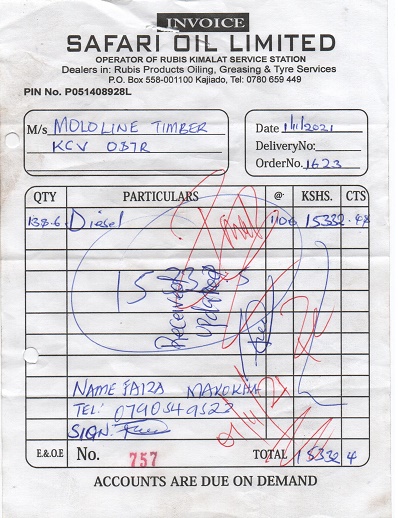 INVOICE
SAFARI OIL LIMITED
OPERATOR OF RUBIS KIMALAT SERVICE STATION
Dealers in: Rubis Products Oiling, Greasing & Tyre Services
P.O. Box 558-001100 Kajiado, Tel: 0780 659 449
PIN No. P051408928L
M/s MOLOLINE TIMBER
KCV 087R
Date 1/11/2021
DeliveryNo:
OrderNo. 1623
QTY PARTICULARS @ KSHS. CTS
138.6 Diesel 15332.
Paid
Received
updated
NAME FAIZA MAKOKHA
TEL: 0790549522
SIGN.
E.&O.E No. 757 TOTAL 15332.4
ACCOUNTS ARE DUE ON DEMAND